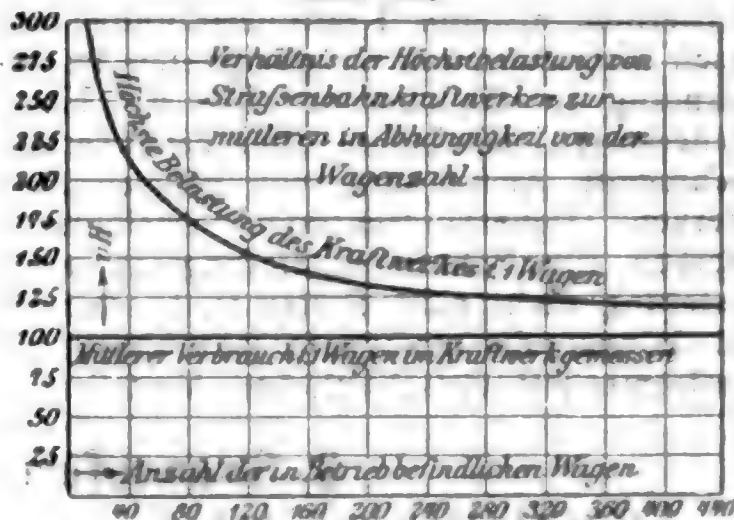 300
275
250
225
200
175
150
125
100
75
50
25
Verhältnis der Höchstbelastung von
Straßenbahnkraftwerken zur
mittleren in Abhängigkeit von der
Wagenzahl
Höchste Belastung des Kraftwerkes f. 1 Wagen
vH
Mittlerer Verbrauch f. 1 Wagen im Kraftwerk gemessen
Anzahl der in Betrieb befindlichen Wagen
40 80 120 160 200 240 280 320 360 400 440